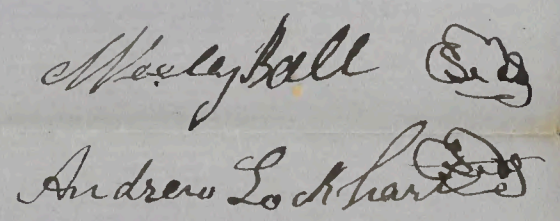 Wesley Ball Seal
Andrew Lockhart Seal